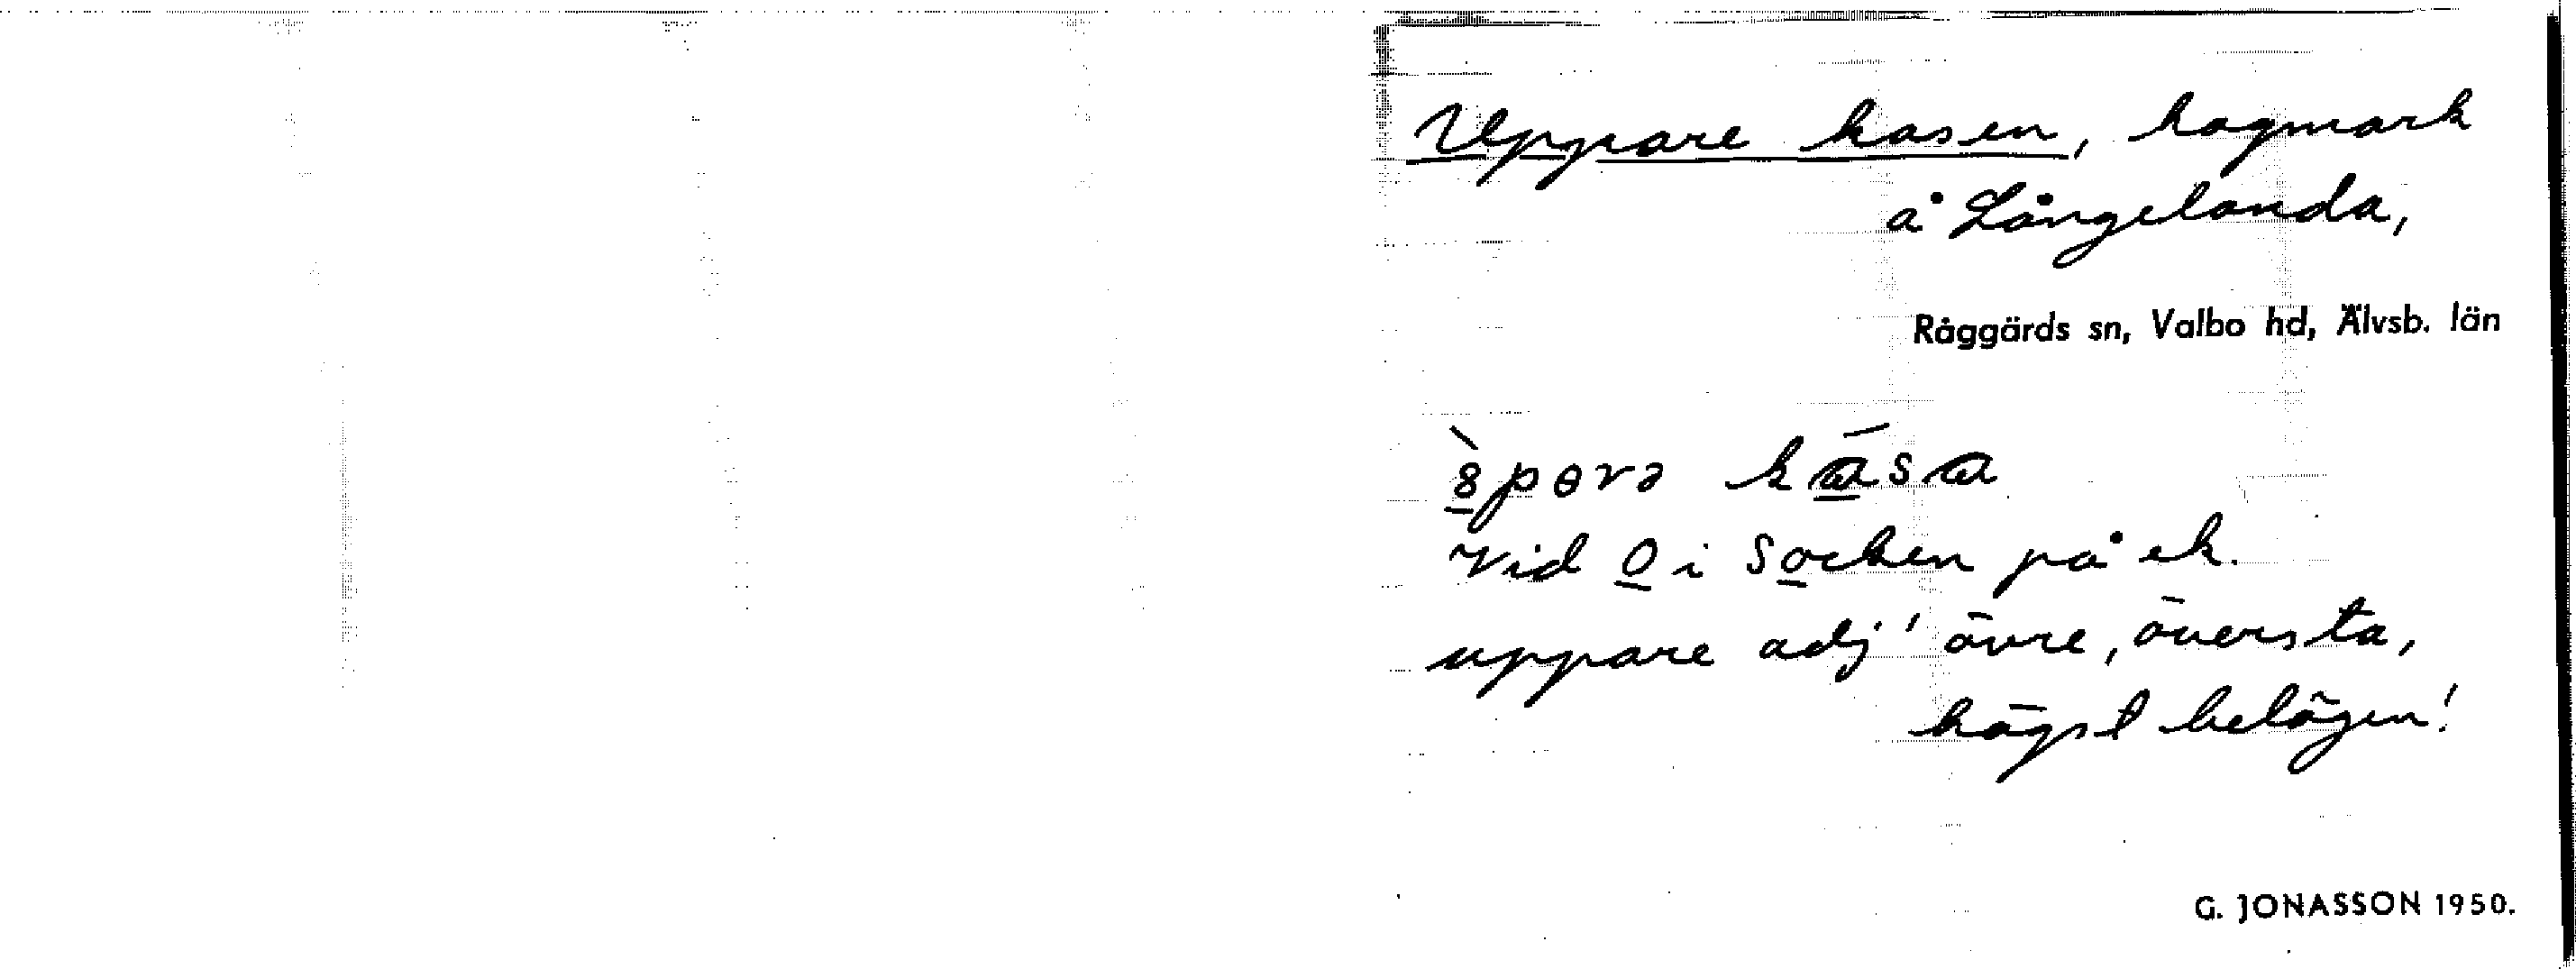 Uppare kasen, hagmark
å Långelanda,
Råggärds sn, Valbo hd, Älvsb. län
8̀pɵrə kása
Vid o i socken på ek.
uppare adj 'övre, översta,
högst belägen'
G. JONASSON 1950.